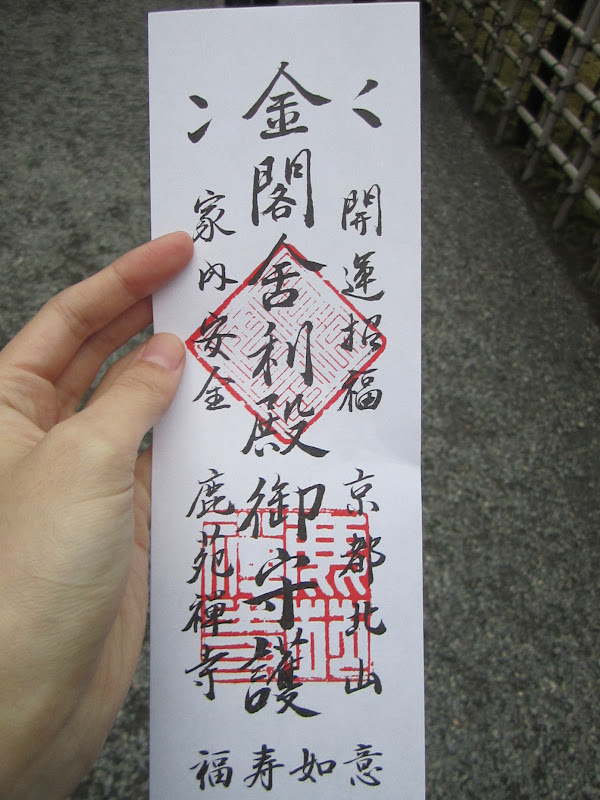 く
開運招福
京都北山
金閣舎利殿御守護
家内安全
鹿苑禅寺
福寿如意